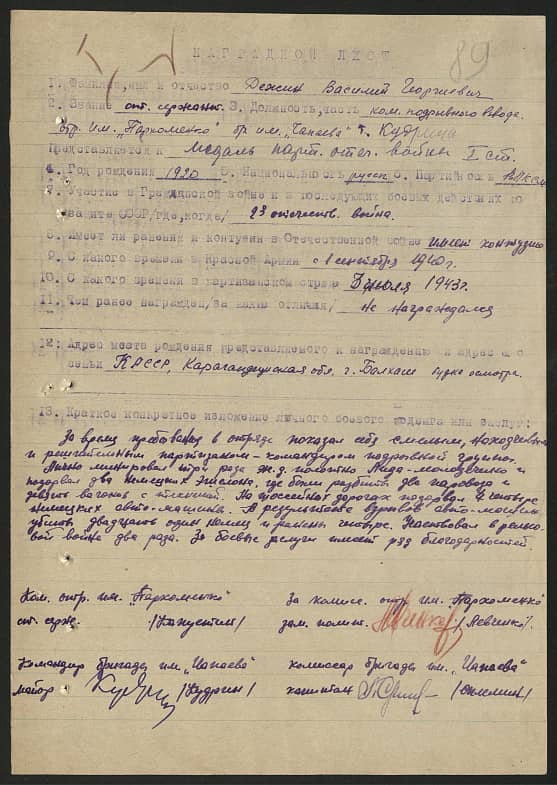 89
НАГРАДНОЙ ЛИСТ
1. Фамилия, имя и отчество Дежин Василий Георгиевич
2. Звание ст. сержант. 3. Должность, часть ком. подрывного взвода.
отр. им. „Пархоменко" бр им. „Чапаева"
Представляется к медаль парт. отеч. войны I ст.
4. Год рождения 1920 5. Национальность русск 6. Партийность ВЛКСМ
7. Участие в Гражданской войне и в последующих боевых действиях по
защите СССР/где, когда/ отечеств. война.
8. Имеет ли ранения и контузии в Отечественной войне имеет контузию
9. С какого времени в Красной Армии с 1 сентября 1940г.
10. С какого времени в партизанском отряде 1943г.
11. Чем ранее награжден/за какие отличия/ Не награждался
12. Адрес места рождения представляемого к награждению и адрес его
семьи КССР, Карагандинская обл, г. Балхаш
13. Краткое конкретное изложение личного боевого подвига или заслуг:
За время пребывания в отряде показал себя смелым, находчивым
и решительным партизаном-командиром подрывной группы.
Лично минировал три раза ж.д. полотно Лида-Молодечно и
подорвал два немецких эшелона, где были разбиты два паровоза и
девять вагонов с техникой. На шоссейных дорогах подорвал 4 четыре
немецких авто-машины. В результате взрывов авто-машин
убиты двадцать один немец и ранены четыре. Участвовал в рельсо-
вой войне два раза. За боевые заслуги имеет ряд благодарностей.
Ком. отр. им. „Пархоменко" За комисс. отр. им. „Пархоменко"
ст. серж. /Капустин/ зам. полит. /Левченко/.
Командир бригады им. „Чапаева" комиссар бригады им. „Чапаева"
майор /Кудрин/ капитан